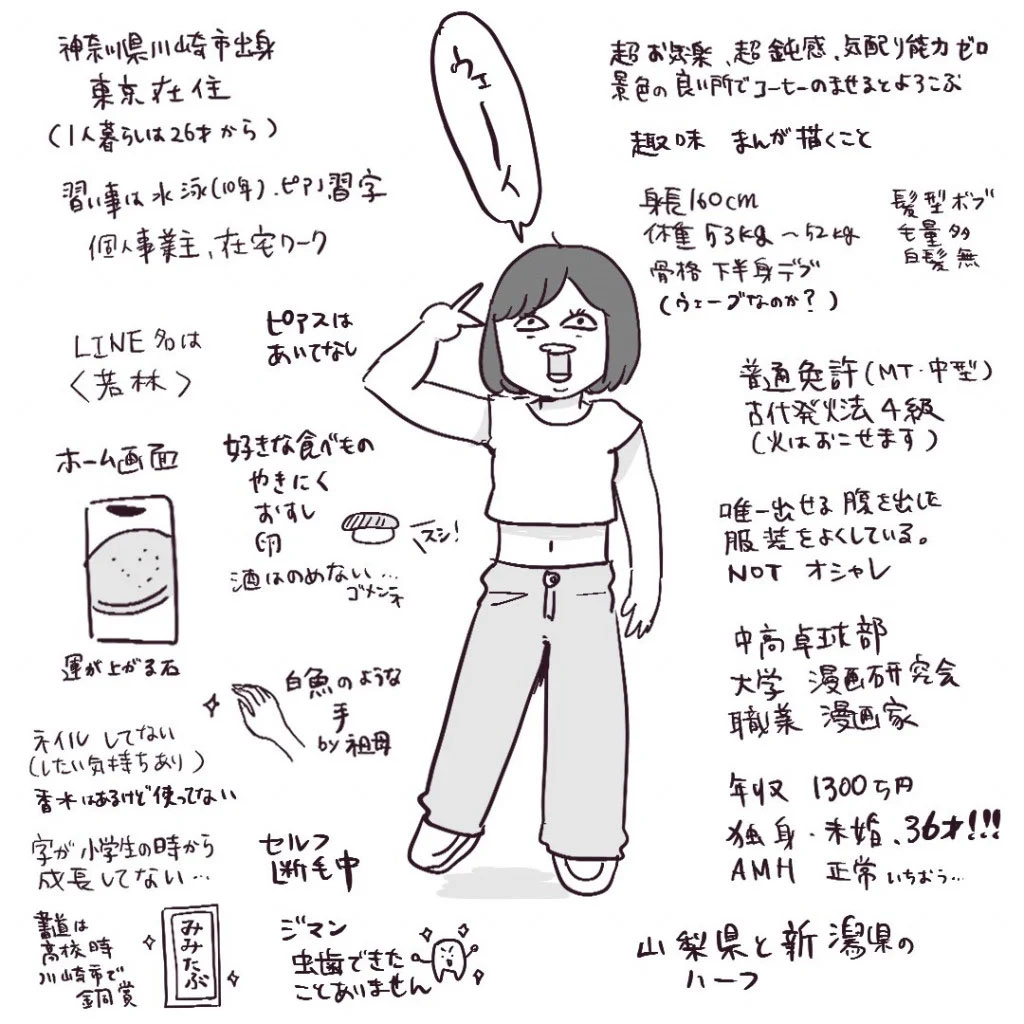 神奈川県川崎市出身
東京在住
(1人暮らしは26才から)
習い事は水泳(10年)、ピアノ習字
個人事業主、在宅ワーク
LINE名は
<若林>
ピアスは
あいてなし
ホーム画面
運が上がる石
好きな食べもの
やきにく
おすし
卵
スシ!
酒はのめない…
ゴメンネ
白魚のような
手
by祖母
ネイルしてない
(したい気持ちあり)
香水はあるけど使ってない
字が小学生の時から
成長してない…
セルフ
断毛中
書道は
高校時
川崎市で
銅賞
みみたぶ
ジマン
虫歯できた
ことありません
ウェーイ
超お気楽、超鈍感、気配り能力ゼロ
景色の良い所でコーヒーのませるとよろこぶ
趣味 まんが描くこと
身長160cm
体重53kg~52kg
骨格 下半身デブ
(ウェーブなのか?)
髪型ボブ
毛量多
白髪無
普通免許(MT・中型)
古代発火法4級
(火はおこせます)
唯一出せる腹を出した
服装をよくしている。
NOT オシャレ
中高卓球部
大学 漫画研究会
職業 漫画家
年収 1300万円
独身・未婚、36才!!!
AMH 正常いちおう…
山梨県と新潟県の
ハーフ